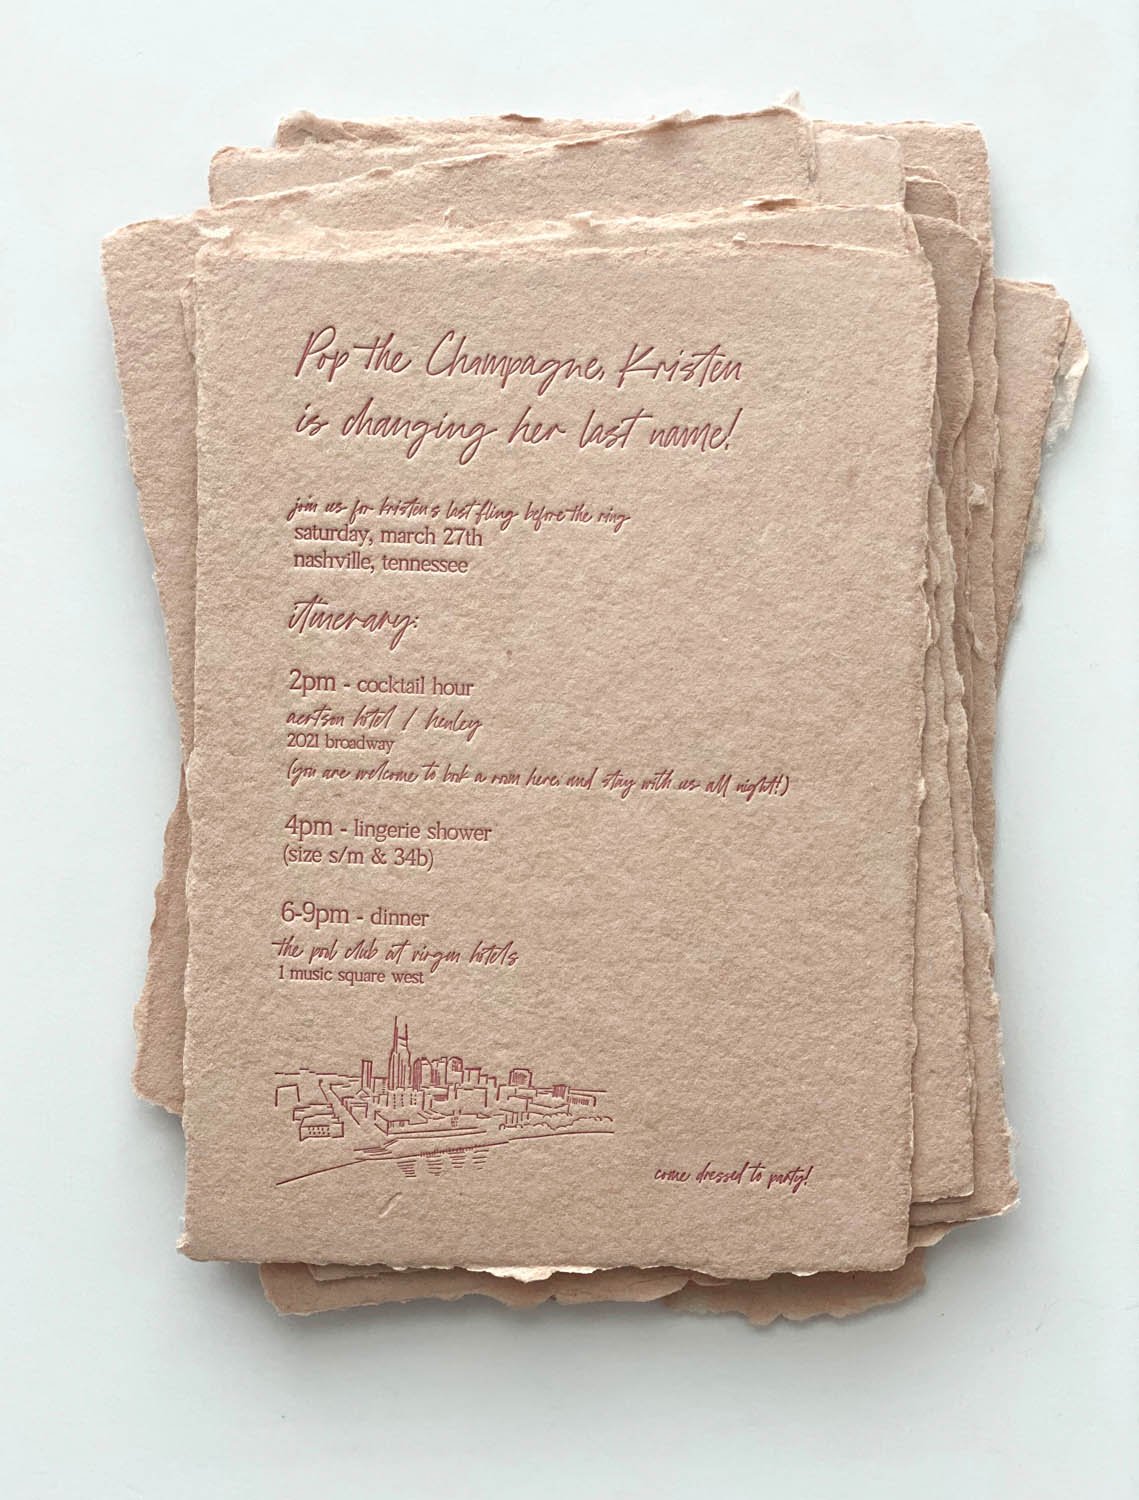 Pop the Champagne, Kristen
is changing her last name!
join us for kristen's last fling before the ring
saturday, march 27th
nashville, tennessee
itinerary:
2pm - cocktail hour
aertson hotel / henley
2021 broadway
(you are welcome to book a room here, and stay with us all night!)
4pm - lingerie shower
(size s/m & 34b)
6-9pm - dinner
the pool club at virgin hotels
1 music square west
come dressed to party!